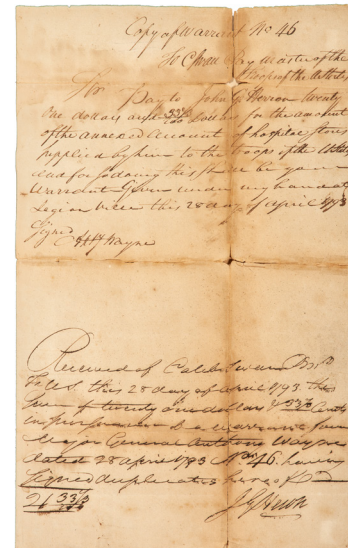 Copy of Warrant No 46
To C Swan Pay Master of the
Troops of the
Sir Pay to John G Heron twenty
one dollars and 33⅓/100 Dollars for the amount
of the annexed account of hospital stores
supplied by him to the troops of the
and for so doing this shall be your
Warrant Given under my hand at
Legion Ville this 28 day of April 1793
Signed Anty Wayne
Received of Caleb Swan
this 28 day of April 1793 the
Sum of twenty one dollars & 33⅓ Cents
in pursuance of a warrant from
Major General Anthony Wayne
dated 28 April 1793 No 46. having
Signed duplicates hereof
21 33⅓/100
J G Heron